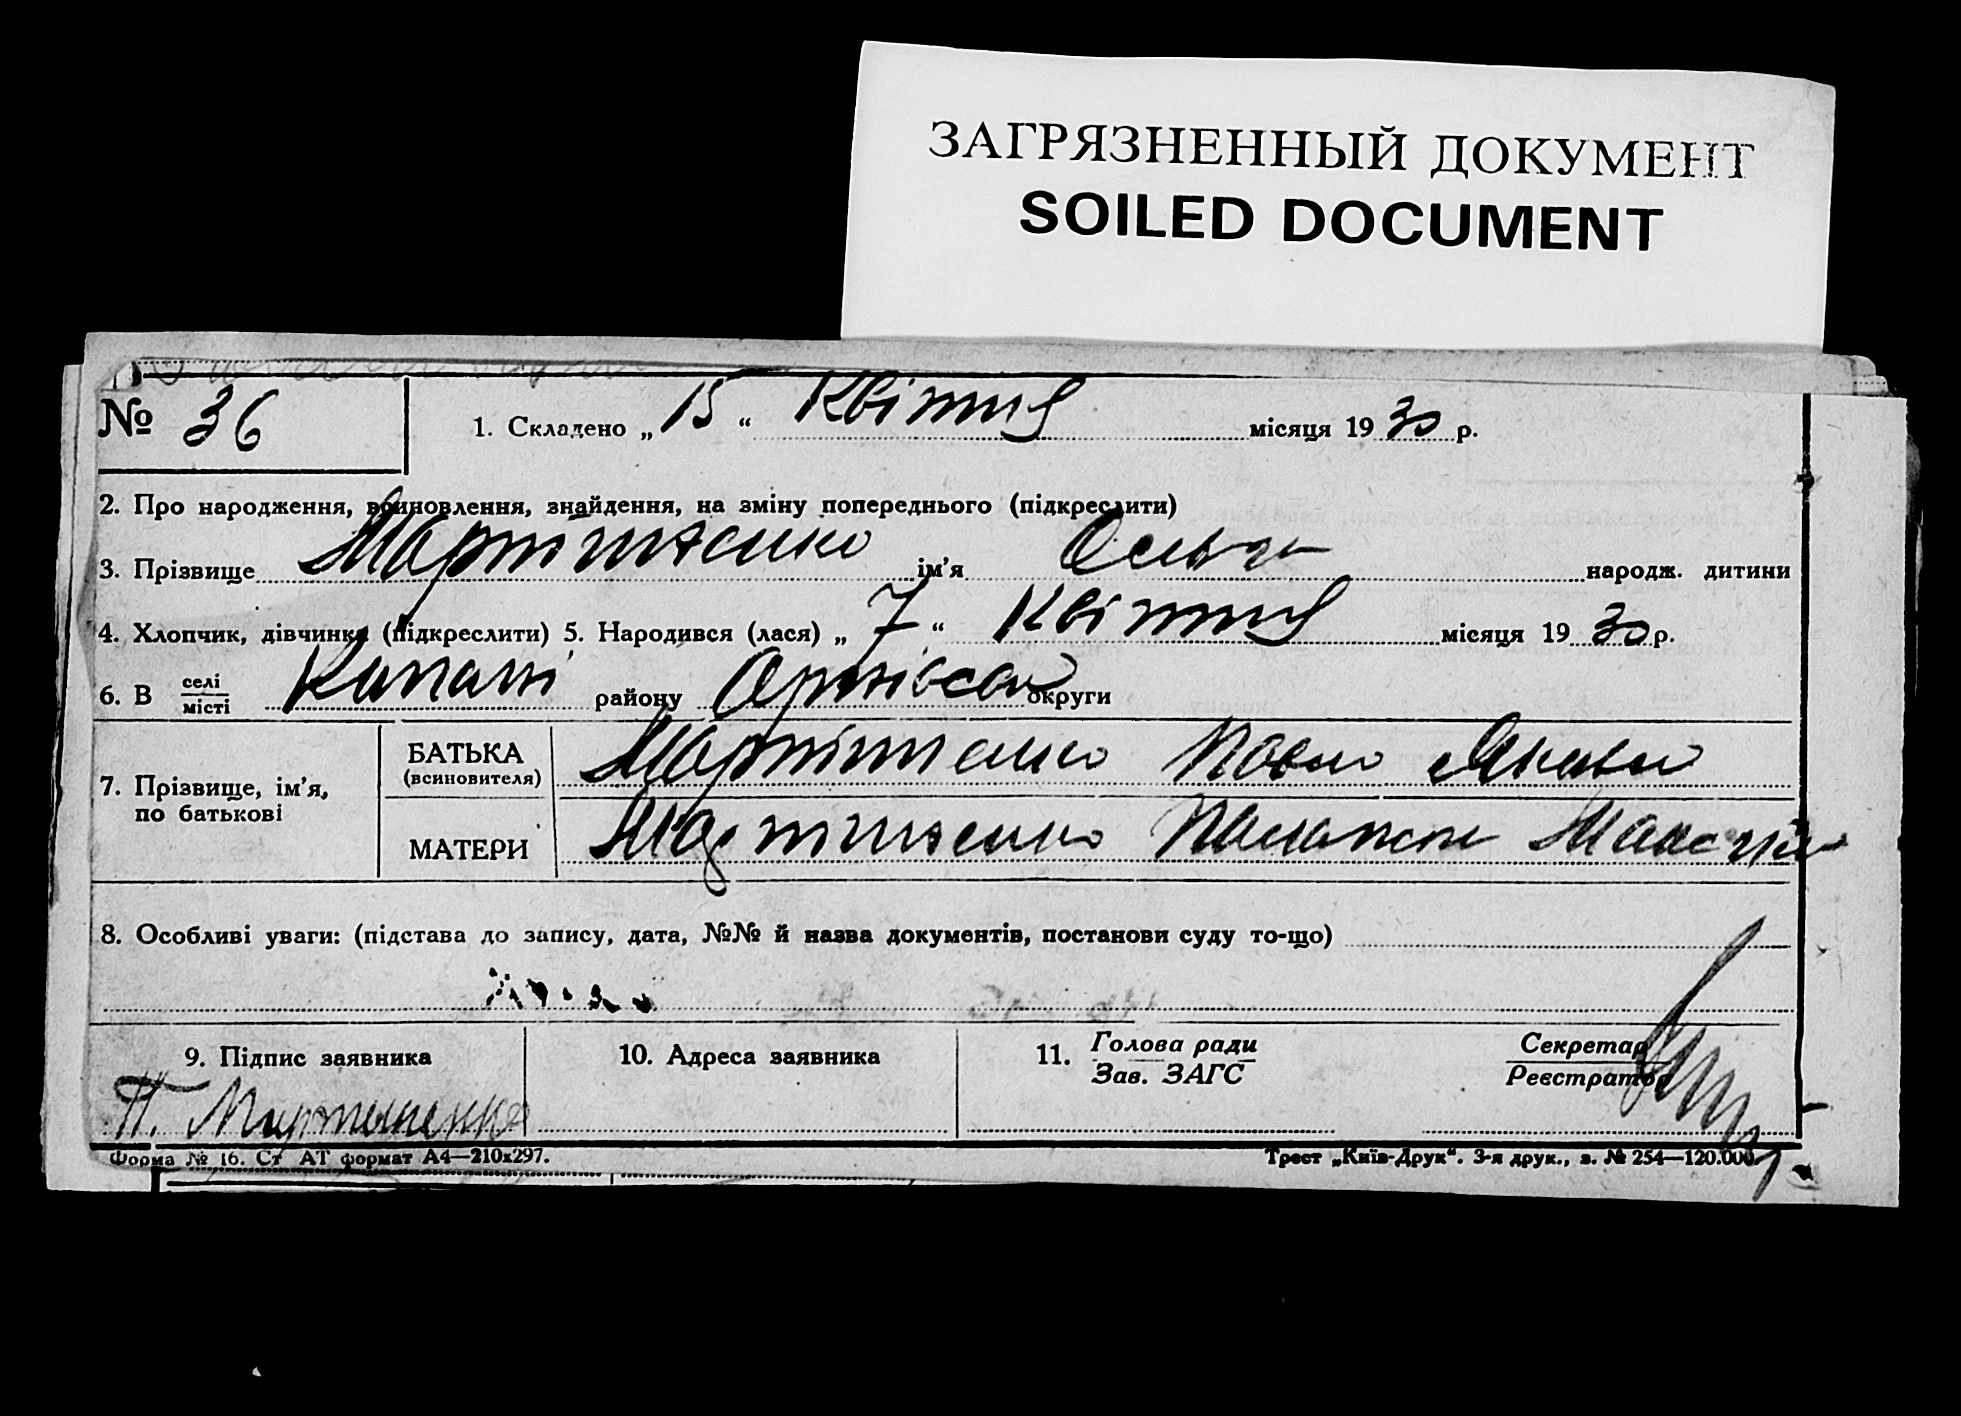 ЗАГРЯЗНЕННЫЙ ДОКУМЕНТ
SOILED DOCUMENT
№ 36
1. Складено „ 15 “ Квітня місяця 1930 р.
2. Про народження, всиновлення, знайдення, на зміну попереднього (підкреслити)
3. Прізвище Мартиненко ім’я Ольга народж. дитини
4. Хлопчик, дівчинка (підкреслити) 5. Народився (лася) „ 7 “ Квітня місяця 1930 р.
6. В селі місті району округи
7. Прізвище, ім’я, по батькові
БАТЬКА (всиновителя) Павло
МАТЕРИ
8. Особливі уваги: (підстава до запису, дата, №№ й назва документів, постанови суду то-що)
9. Підпис заявника
10. Адреса заявника
11. Голова ради Зав. ЗАГС
Секретар Реєстратор
П.
Форма № 16. Ст АТ формат А4—210х297.
Трест „Київ-Друк“. 3-я друк., з. № 254—120.000.